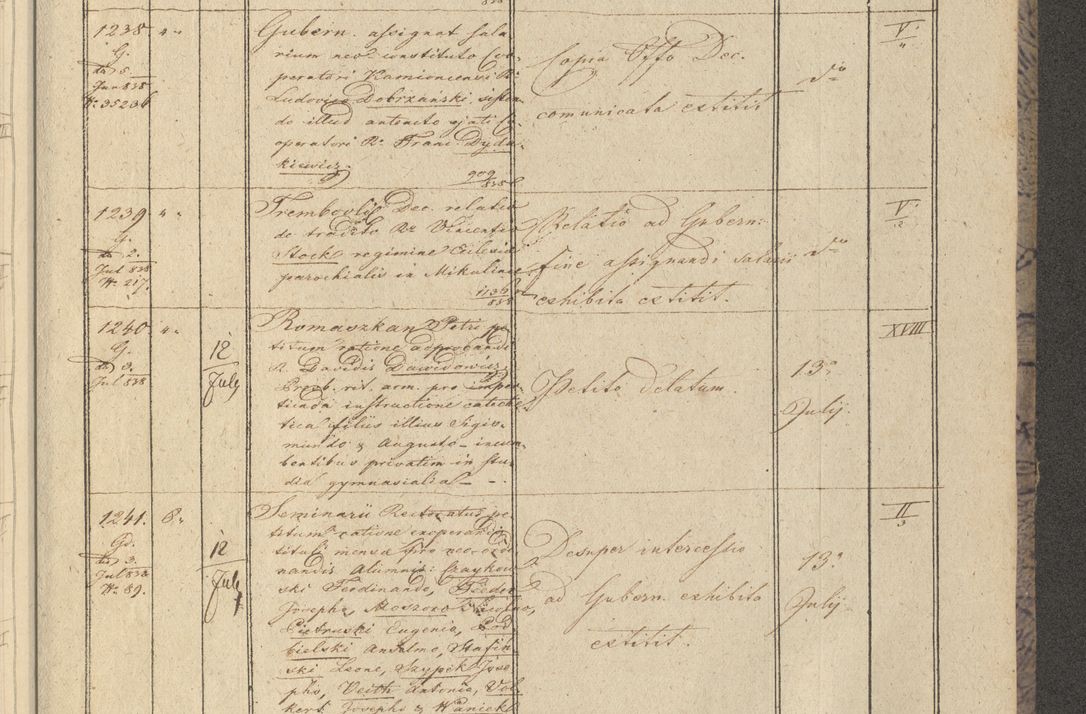 1238 "
G.
dto 5.
Jun 838
Nr. 35236
Gubern. assignat sala
rium neo constituto Coo-
peratori Kamioncensi Rs.
Ludovico Dobrzański sisten
do illud antenato ejati Co-
operatori Rs. Franc: Dydu-
kiewicz.
909
838
Copia Offo Dec.
comunicata extitit
V.
"
1239 "
G.
de 2.
Jul 838
Nr. 217.
Trembovlise Dec. relatio
de tradito Rs. Vincentio
Stock regimine Eclesiae
parochialis in Mikulince
1136
838
Relatio ad Gubern:
fine assignandi salarii
exhibita extitit.
V.
2
1240 "
G.
de 3.
Jul 838
12
July
Romaszkan Petri pe-
titum ratione adprobandi
R. Davidis Dawidowicz
Presb. rit. arm. pro imper-
tienda instructione cateche
tica filiis illius Sigis-
mundo & Augusto incum-
bentibus privatim in stu-
dia gymnasialia
Petito delatum
13a
Julij
XVIII
1241. 8.
Gd.
de 3.
Jul 838
Nr. 89.
12
July
Seminarii Rectoratus pe-
titum ratione exoperandi
tituli mensa pro neo-ordi
nandis Alumnis: Czaykow-
ski Ferdinando,
Josepho,
Pietruski Eugenio, Pod
bielski Anselmo, Stafiń-
ski Leone, Szypek Jose
pho, Veith Antonio, Vol
kert Josepho & Waniekl
Desuper intercessio
ad Gubern. exhibita
extitit.
13a
Julij
II
3